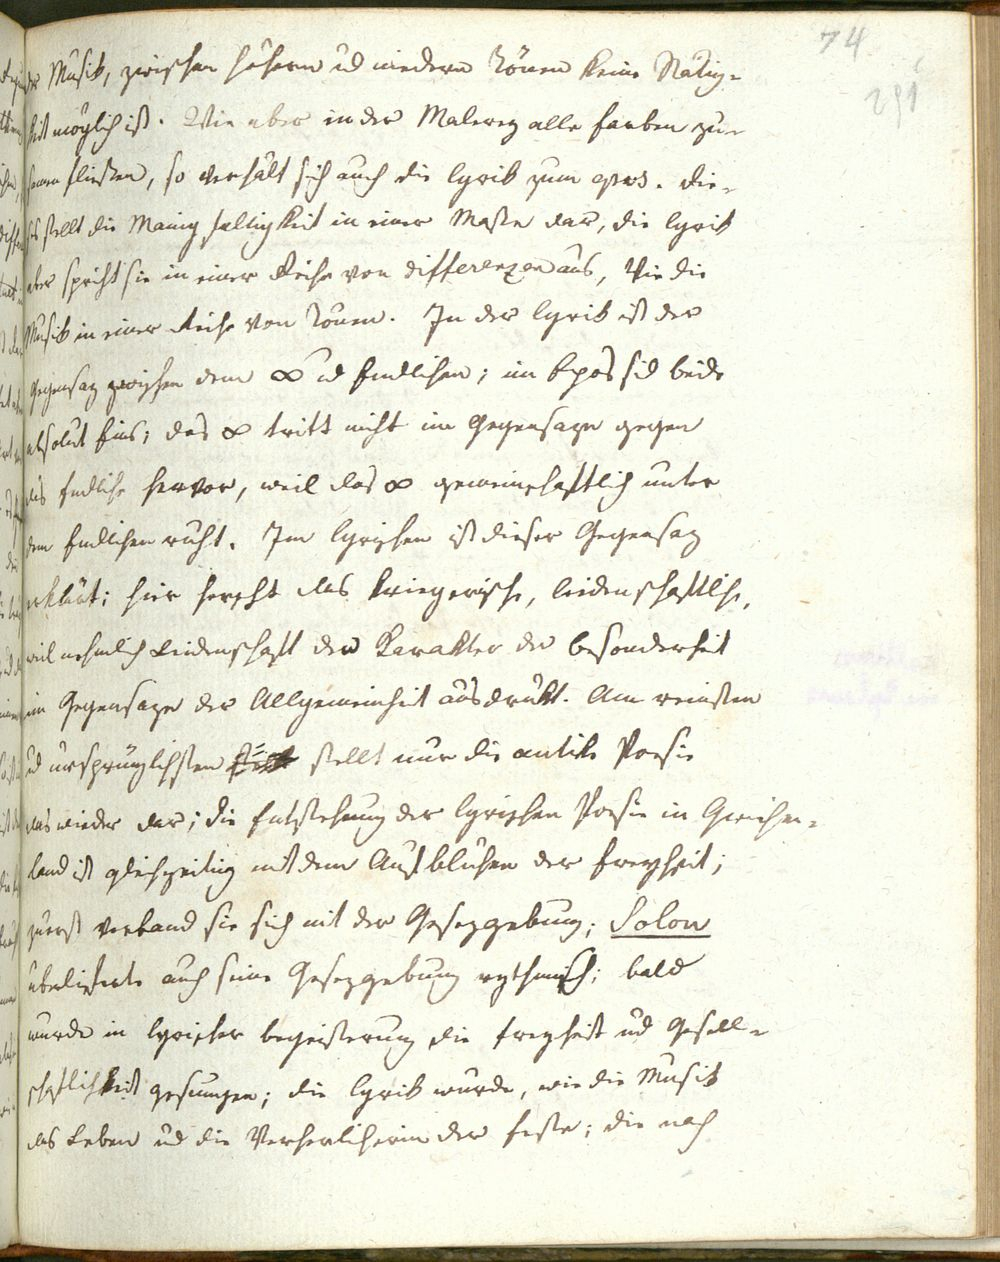 74
291
der Musik, zwischen höhern ud niedern Tönen keine Stätig-
keit möglich ist. Wie aber in der Malerey alle Farben zu-
samen fliessen, so verhält sich auch die Lyrik zum epos. Die-
ses stellt die Manigfaltigkeit in einer Masse dar, die Lyrik
aber spricht sie in einer Reihe von differenzen aus, wie die
Musik in einer Reihe von Tönen. In der Lyrik ist der
Gegensaz zwischen dem ∞ ud Endlichen; im Epos sid beide
absolut Eins; das ∞ tritt nicht im Gegensaze gegen
das Endliche hervor, weil das ∞ gemeinschaftlich unter
dem Endlichen ruht. Im lyrischen ist dieser Gegensaz
erklärt; hier herscht das kriegerische, leidenschaftliche,
weil nehmlich Leidenschaft den Karakter der besonderheit
im Gegensaze der Allgemeinheit ausdrükt. Am reinsten
ud ursprünglichsten stellt nur die antike Poesie
das wieder dar; die Entstehung der lyrischen Poesie in Griechen-
land ist gleichzeitig mit dem Aufblühen der Freyheit;
zuerst verband sie sich mit der Gesezgebung; Solon
überlieferte auch seine Gesezgebung rythmisch; bald
wurde in lyrischer begeisterung die Freyheit ud Gesell-
schaftlichkeit gesungen; die Lyrik wurde, wie die Musik
das Leben ud die Verherlicherin der Feste; die nach